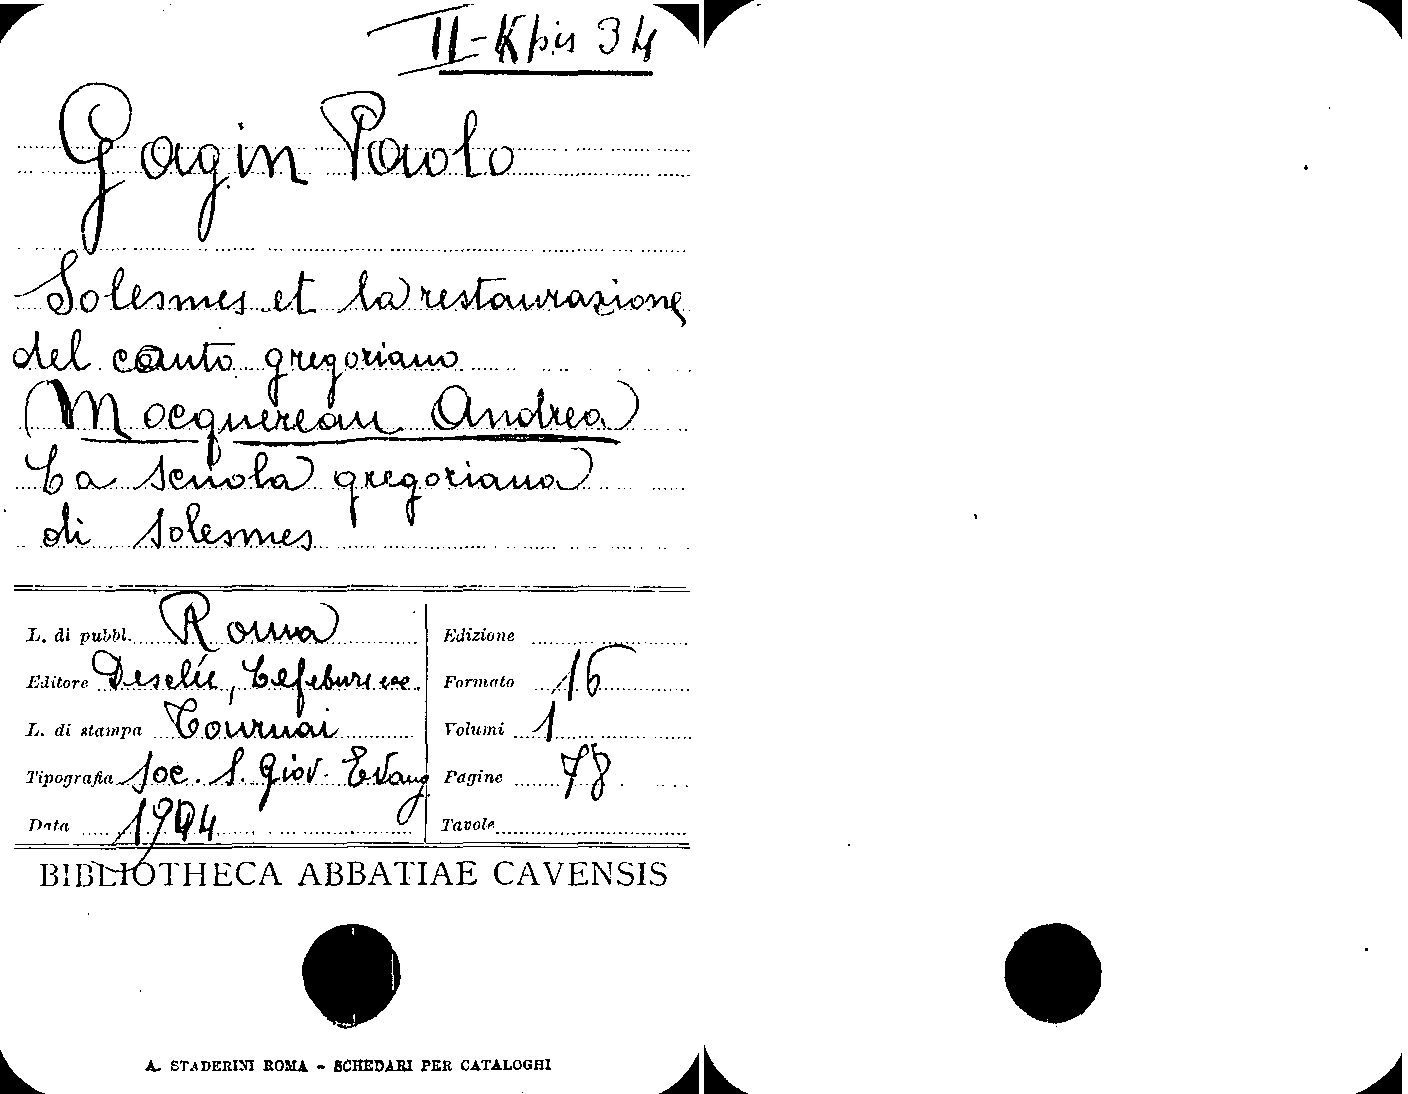 II-Kbis 34
Gagin Paolo
Solesmes et la restaurazione
del canto gregoriano
(Mocquereau Andrea)
La scuola gregoriana
di Solesmes
L. di pubbl. Roma
Editore Desclée, Lefebvre ec.
L. di stampa Tournai
Tipografia Soc. S. Giov. Evang
Data
Edizione
Formato 16
Volumi 1
Pagine 78
Tavole
BIBLIOTHECA ABBATIAE CAVENSIS
A. STADERINI ROMA - SCHEDARI PER CATALOGHI